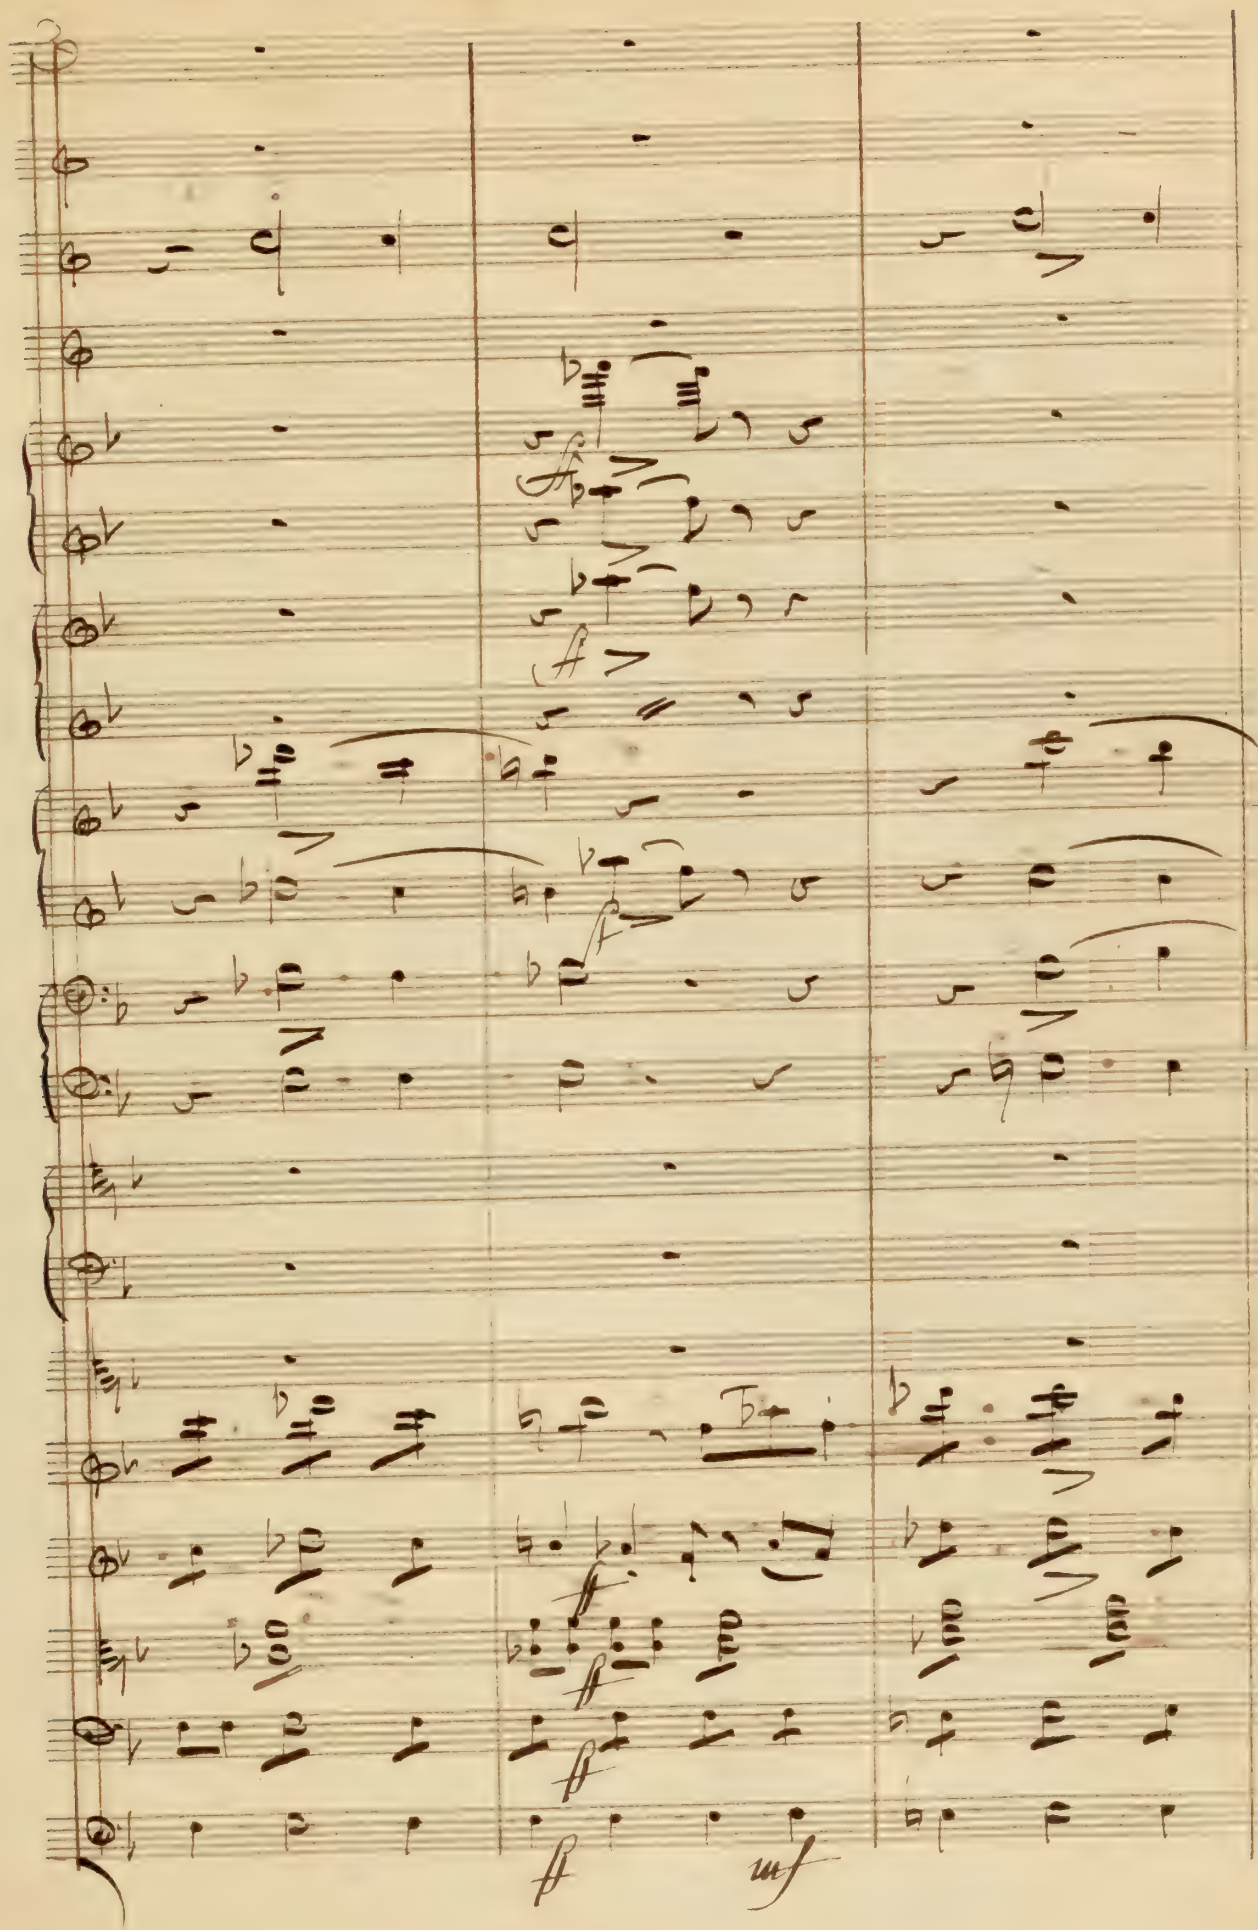 ff
ff
ff
ff
ff
ff
ff mf